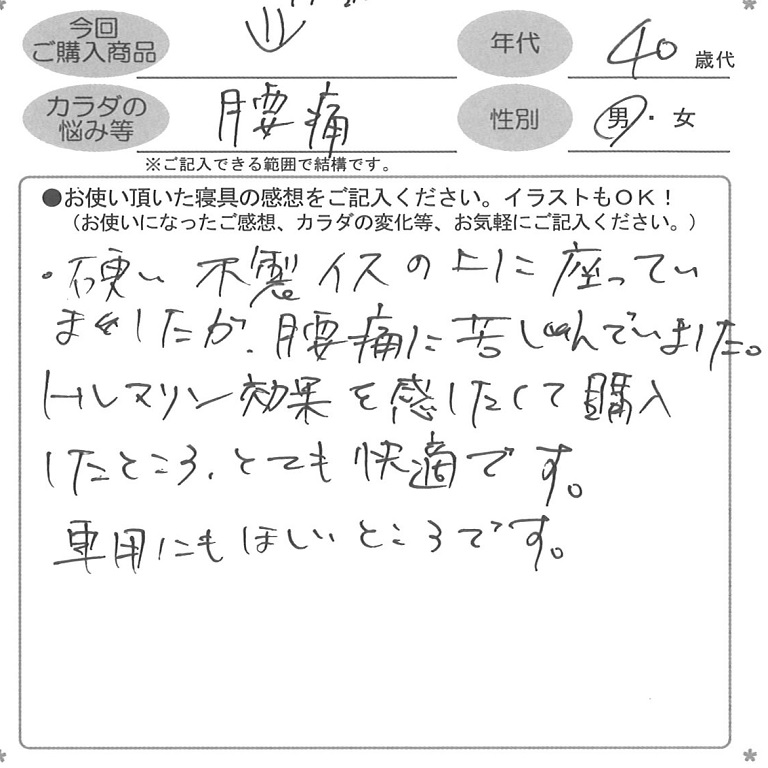 今回
ご購入商品
年代
40
歳代
カラダの
悩み等
腰痛
性別
男・女
※ご記入できる範囲で結構です。
●お使い頂いた寝具の感想をご記入ください。イラストもOK！
（お使いになったご感想、カラダの変化等、お気軽にご記入ください。）
・硬い木製イスの上に座ってい
ましたが、腰痛に苦しんでいました。
トルマリン効果を感じたくて購入
したところ、とても快適です。
車用にもほしいところです。